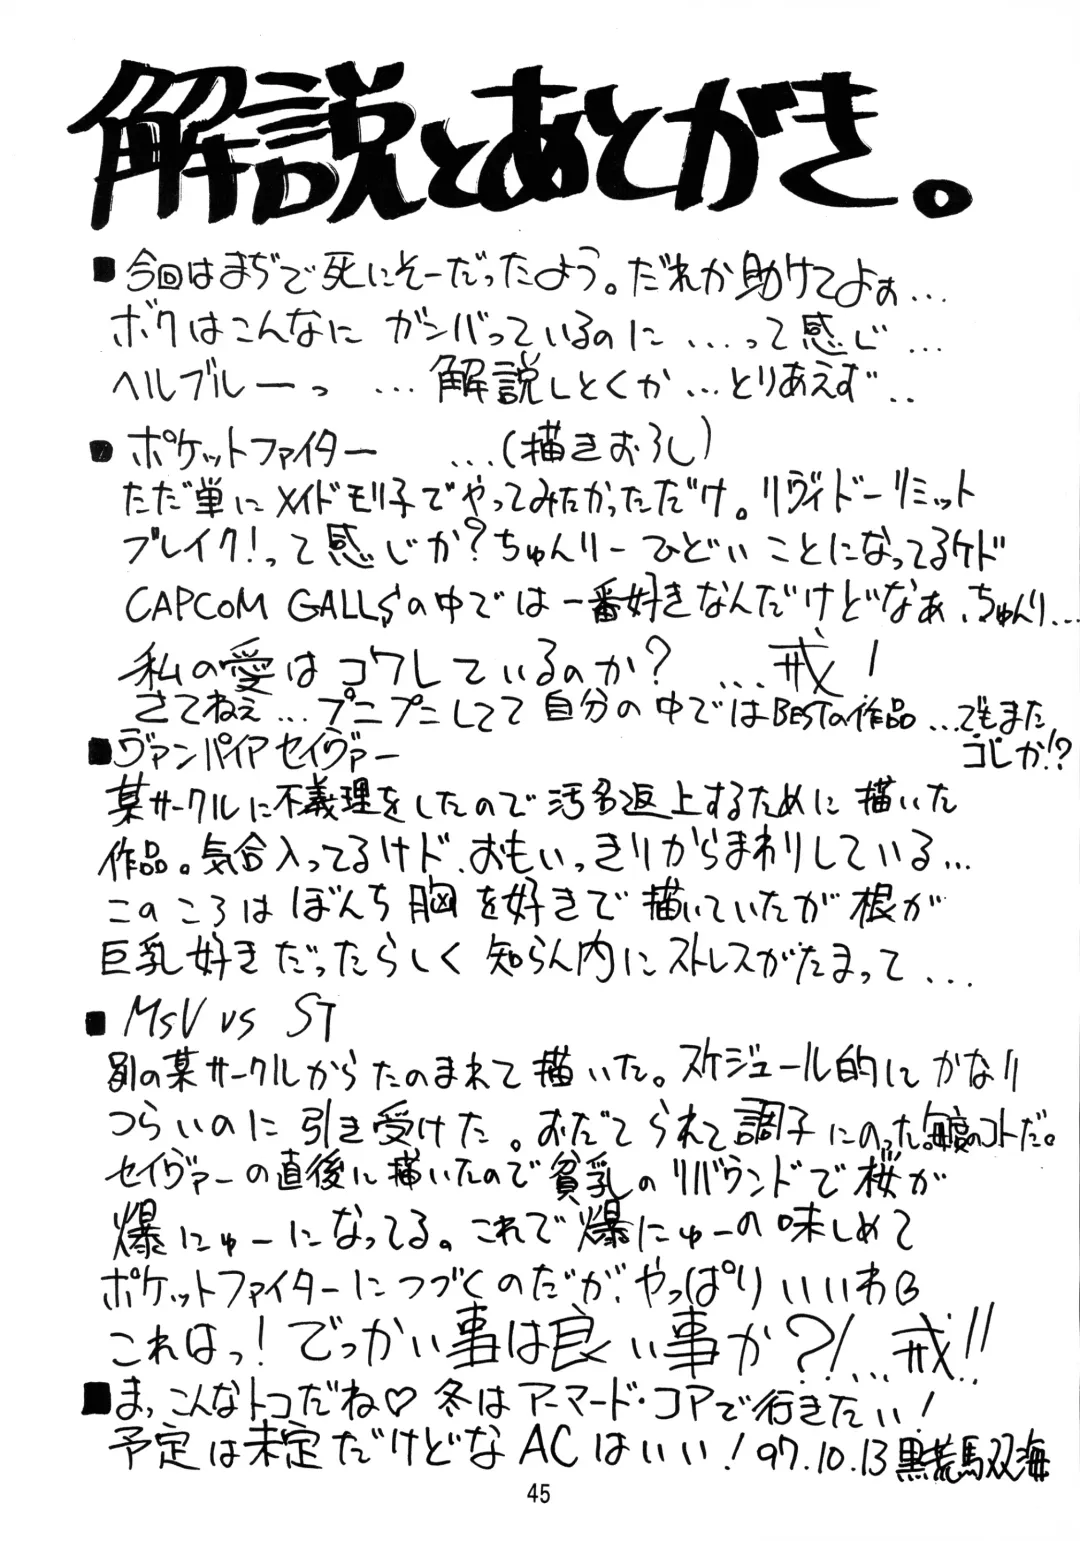 解説とあとがき。
■今回はまぢで死にそーだったよう。だれか助けてよぉ...
ボクはこんなに ガンバっているのに ...って感じ...
ヘルブルーっ ...解説しとくか...とりあえず..
■ポケットファイター ...(描きおろし)
ただ単にメイドモリ子でやってみたかっただけ。リヴィドーリミット
ブレイク!って感じか?ちゅんりーひどいことになってるケド
CAPCOM GALLSの中では一番好きなんだけどなぁ、ちゅんり...
私の愛はコワレているのか? ...戒!
さてねぇ...プニプニしてて自分の中ではBESTの作品...でもまた
コレか!?
■ヴァンパイアセイヴァー
某サークルに不義理をしたので汚名返上するために描いた
作品。気合入ってるけド、おもいっきりからまわりしている...
このころはぼんち胸を好きで描いていたが根が
巨乳好きだったらしく知らん内にストレスがたまって...
■MSV vs ST
別の某サークルからたのまれて描いた。スケジュール的にかなり
つらいのに引き受けた。おだてられて調子にのった。毎度のコトだ。
セイヴァーの直後に描いたので貧乳のリバウンドで桜が
爆にゅーになってる。これで爆にゅーの味しめて
ポケットファイターにつづくのだが、やっぱりいいわ
これはっ!でっかい事は良い事か?!...戒!!
■ま、こんなトコだね♡冬はアーマード・コアで行きたい!
予定は未定だけどなACはいい!97.10.13黒荒馬双海
45